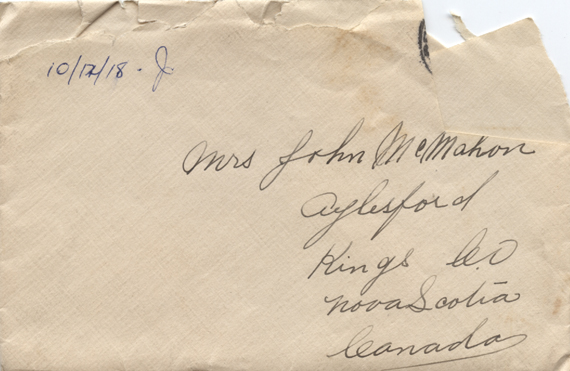 10/12/18 - J
Mrs John McMahon
Aylesford
Kings Co
Nova Scotia
Canada